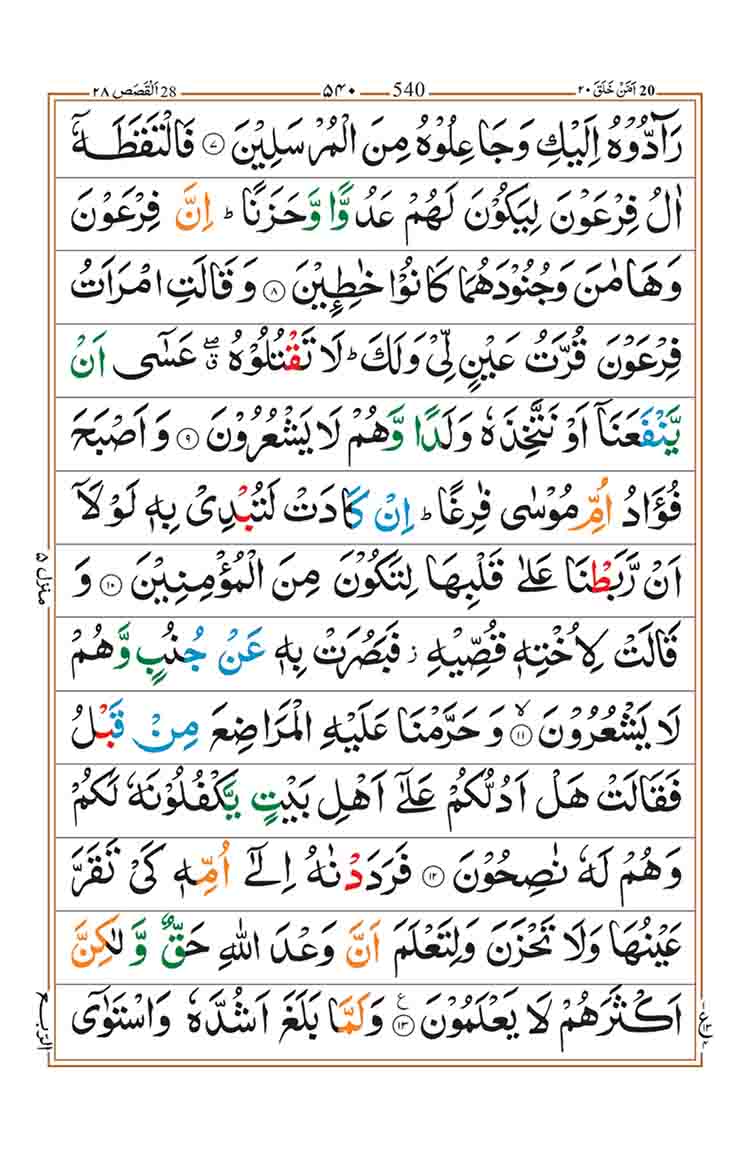 20 اَمَّنْ خَلَقَ ٢٠ 540 ۵۴۰ 28 اَلْقَصَص ٢٨
رَآدُّوْهُ اِلَيْكِ وَجَاعِلُوْهُ مِنَ الْمُرْسَلِيْنَ ۷ فَالْتَقَطَهٗۤ
اٰلُ فِرْعَوْنَ لِيَكُوْنَ لَهُمْ عَدُوًّا وَّحَزَنًا ؕ اِنَّ فِرْعَوْنَ
وَهَامٰنَ وَجُنُوْدَهُمَا كَانُوْا خٰطِـِٕيْنَ ۸ وَقَالَتِ امْرَاَتُ
فِرْعَوْنَ قُرَّتُ عَيْنٍ لِّيْ وَلَكَ ؕ لَا تَقْتُلُوْهُ ۖق عَسٰۤى اَنْ
يَّنْفَعَنَاۤ اَوْ نَتَّخِذَهٗ وَلَدًا وَّهُمْ لَا يَشْعُرُوْنَ ۹ وَاَصْبَحَ
فُؤَادُ اُمِّ مُوْسٰى فٰرِغًا ؕ اِنْ كَادَتْ لَتُبْدِيْ بِهٖ لَوْلَاۤ
اَنْ رَّبَطْنَا عَلٰى قَلْبِهَا لِتَكُوْنَ مِنَ الْمُؤْمِنِيْنَ ۱۰ وَ
قَالَتْ لِاُخْتِهٖ قُصِّيْهِ ز فَبَصُرَتْ بِهٖ عَنْ جُنُبٍ وَّهُمْ
لَا يَشْعُرُوْنَ ۙ ۱۱ وَحَرَّمْنَا عَلَيْهِ الْمَرَاضِعَ مِنْ قَبْلُ
فَقَالَتْ هَلْ اَدُلُّكُمْ عَلٰۤى اَهْلِ بَيْتٍ يَّكْفُلُوْنَهٗ لَكُمْ
وَهُمْ لَهٗ نٰصِحُوْنَ ۱۲ فَرَدَدْنٰهُ اِلٰۤى اُمِّهٖ كَيْ تَقَرَّ
عَيْنُهَا وَلَا تَحْزَنَ وَلِتَعْلَمَ اَنَّ وَعْدَ اللّٰهِ حَقٌّ وَّلٰكِنَّ
اَكْثَرَهُمْ لَا يَعْلَمُوْنَ ۱۳ ع وَلَمَّا بَلَغَ اَشُدَّهٗ وَاسْتَوٰۤى
منزل ۵
الربع